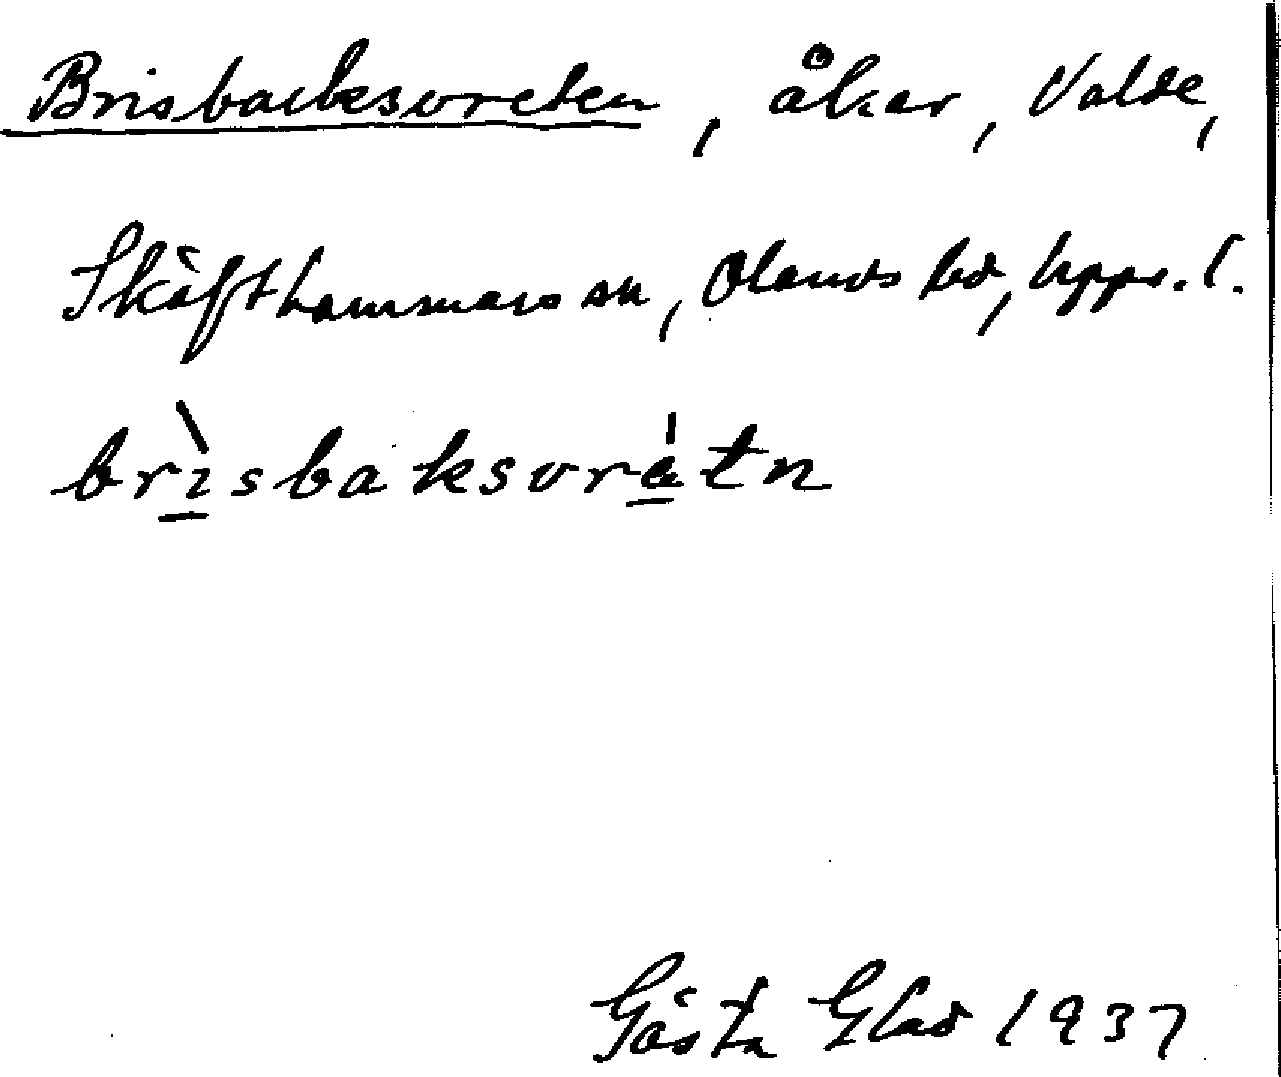 Brisbacksvreten, åker, Valde,
Skäfthammars sn, Olands hd, Upps. l.
brìsbaksvrétn
Gösta Glad 1937